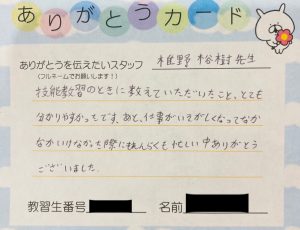 ありがとうカード
ありがとうを伝えたいスタッフ
(フルネームでお願いします!)
椎野 裕樹 先生
技能教習のときに教えていただいたこと、とても
分かりやすかったです。あと、仕事がいそがしくなってなか
なかいけなかった際に れんらくも 忙しい中ありがとう
ございました。
教習生番号
名前